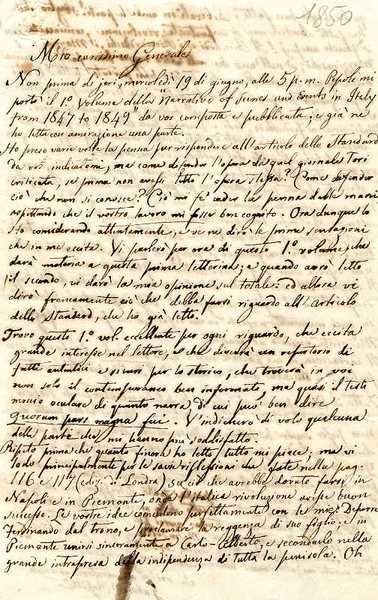 1850
Mio carissimo Generale
Non prima di jeri, mercoldì 19 di giugno, alle 5 p.m. Pepoli mi
portò il 1º. Volume della "Narrative of Scenes and Events in Italy
from 1847 to 1849 da voi composta e pubblicata, e già ne
ho letta con ammirazione una parte.
Ho preso varie volte la penna per rispondere all'articolo dello Standard
da voi indicatomi, ma come difender l'opera da quel giornale Tori
criticata, se prima non avessi letto l'opera stessa? Come difender
ciò che non si conosce? Ciò mi fe' cader la penna dalle mani
aspettando che il vostro lavoro mi fosse ben cognito. Ora dunque lo
sto considerando attentamente, e ve ne dirò le prime sensazioni
che in me eccita. Vi parlerò per ora di questo 1º. volume, che
darà materia a questa prima letterina; e quando avrò letto
il secondo, vi darò la mia opinione sul totale: ed allora vi
dirò francamente ciò che dovrà farsi riguardo all'Articolo
dello Standard, che ho già letto.
Trovo questo 1º. vol. eccellente per ogni riguardo, che eccita
grande interesse nel lettore, e che diverrà un repertorio di
fatti autentici e sicuri per lo storico, che troverà in voi
non solo il contemporaneo ben informato, ma quasi il testi
monio oculare di quanto narra, di cui può ben dire
Quorum pars magna fui. V'indicherò di volo qualcuna
delle parti che mi hanno più soddisfatto.
Ripeto prima che quanto finora ho letto tutto mi piace, ma vi
lodo principalmente per le savie riflessioni che fate nella pag.
116 e 117 (ediz. di Londra) su ciò che avrebbe dovuto farsi in
Napoli e in Piemonte, onde l'italica rivoluzione avesse buon
successo. Le vostre idee combinano perfettamente con le mie: Deporre
Ferdinando dal trono, e proclamare la reggenza di suo figlio, e in
Piemonte unirsi sinceramente a Carlo-Alberto, e secondarlo nella
grande intrapresa della indipendenza di tutta la penisola. Oh